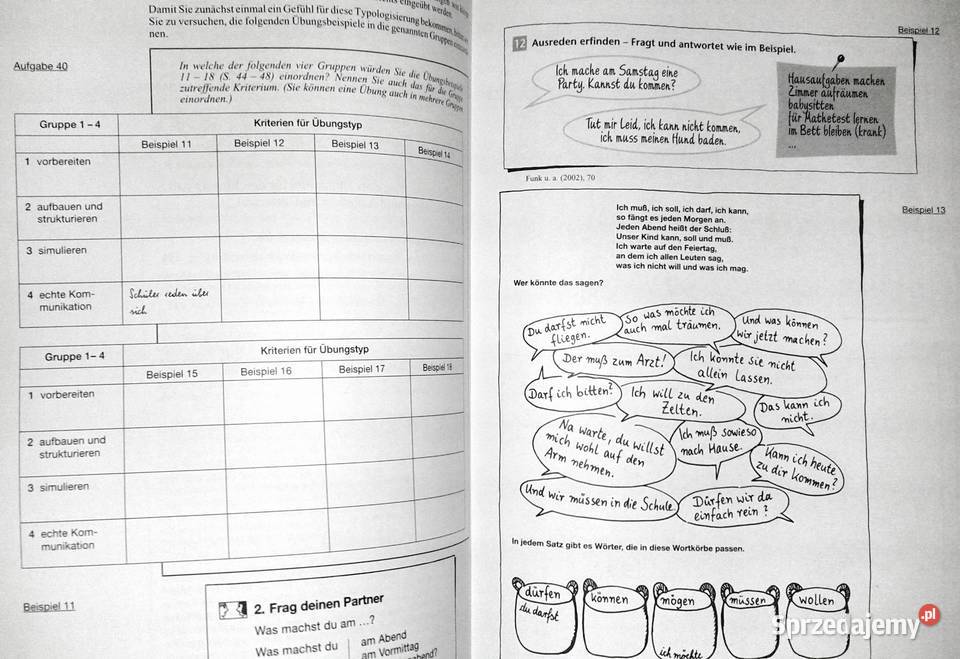 eingeübt werden.
Damit Sie zunächst einmal ein Gefühl für diese Typologisierung bekommen,
Sie zu versuchen, die folgenden Übungsbeispiele in die genannten Gruppen
nen.
Aufgabe 40
In welche der folgenden vier Gruppen würden Sie die Übungsbeispiele
11 – 18 (S. 44 – 48) einordnen? Nennen Sie auch das für die Gruppe
zutreffende Kriterium. (Sie können eine Übung auch in mehrere Gruppen
einordnen.)
Gruppe 1 – 4
Kriterien für Übungstyp
Beispiel 11 Beispiel 12 Beispiel 13 Beispiel 14
1 vorbereiten
2 aufbauen und
strukturieren
3 simulieren
4 echte Kom-
munikation
Schüler reden über
sich
Gruppe 1 – 4
Kriterien für Übungstyp
Beispiel 15 Beispiel 16 Beispiel 17 Beispiel 18
1 vorbereiten
2 aufbauen und
strukturieren
3 simulieren
4 echte Kom-
munikation
Beispiel 11
2. Frag deinen Partner
Was machst du am ...?
Was machst du
am Abend
am Vormittag
Beispiel 12
12 Ausreden erfinden – Fragt und antwortet wie im Beispiel.
Ich mache am Samstag eine
Party. Kannst du kommen?
Tut mir Leid, ich kann nicht kommen,
ich muss meinen Hund baden.
Hausaufgaben machen
Zimmer aufräumen
babysitten
für Mathetest lernen
im Bett bleiben (krank)
...
Funk u. a. (2002), 70
Beispiel 13
Ich muß, ich soll, ich darf, ich kann,
so fängt es jeden Morgen an.
Jeden Abend heißt der Schluß:
Unser Kind kann, soll und muß.
Ich warte auf den Feiertag,
an dem ich allen Leuten sag,
was ich nicht will und was ich mag.
Wer könnte das sagen?
Du darfst nicht
fliegen.
So was möchte ich
auch mal träumen.
Und was können
wir jetzt machen?
Der muß zum Arzt!
Ich konnte sie nicht
allein lassen.
Darf ich bitten?
Ich will zu den
Zelten.
Das kann ich
nicht.
Na warte, du willst
mich wohl auf den
Arm nehmen.
Ich muß sowieso
nach Hause.
Kann ich heute
zu dir kommen?
Und wir müssen in die Schule.
Dürfen wir da
einfach rein?
In jedem Satz gibt es Wörter, die in diese Wortkörbe passen.
dürfen
du darfst
können
mögen
ich möchte
müssen
wollen
Sprzedajemy.pl